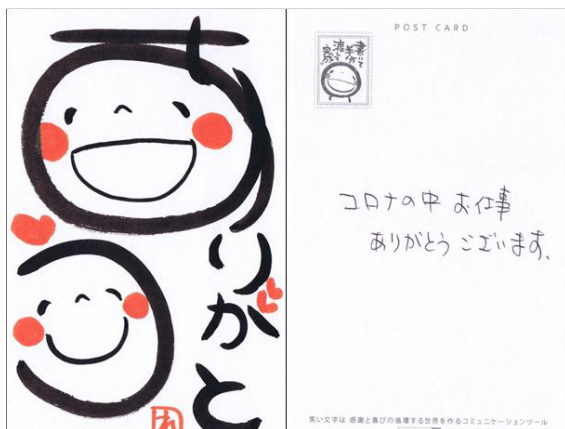 ありがとう
POST CARD
コロナの中 お仕事
ありがとうございます。
笑い文字は 感謝と喜びの循環する世界を作るコミュニケーションツール